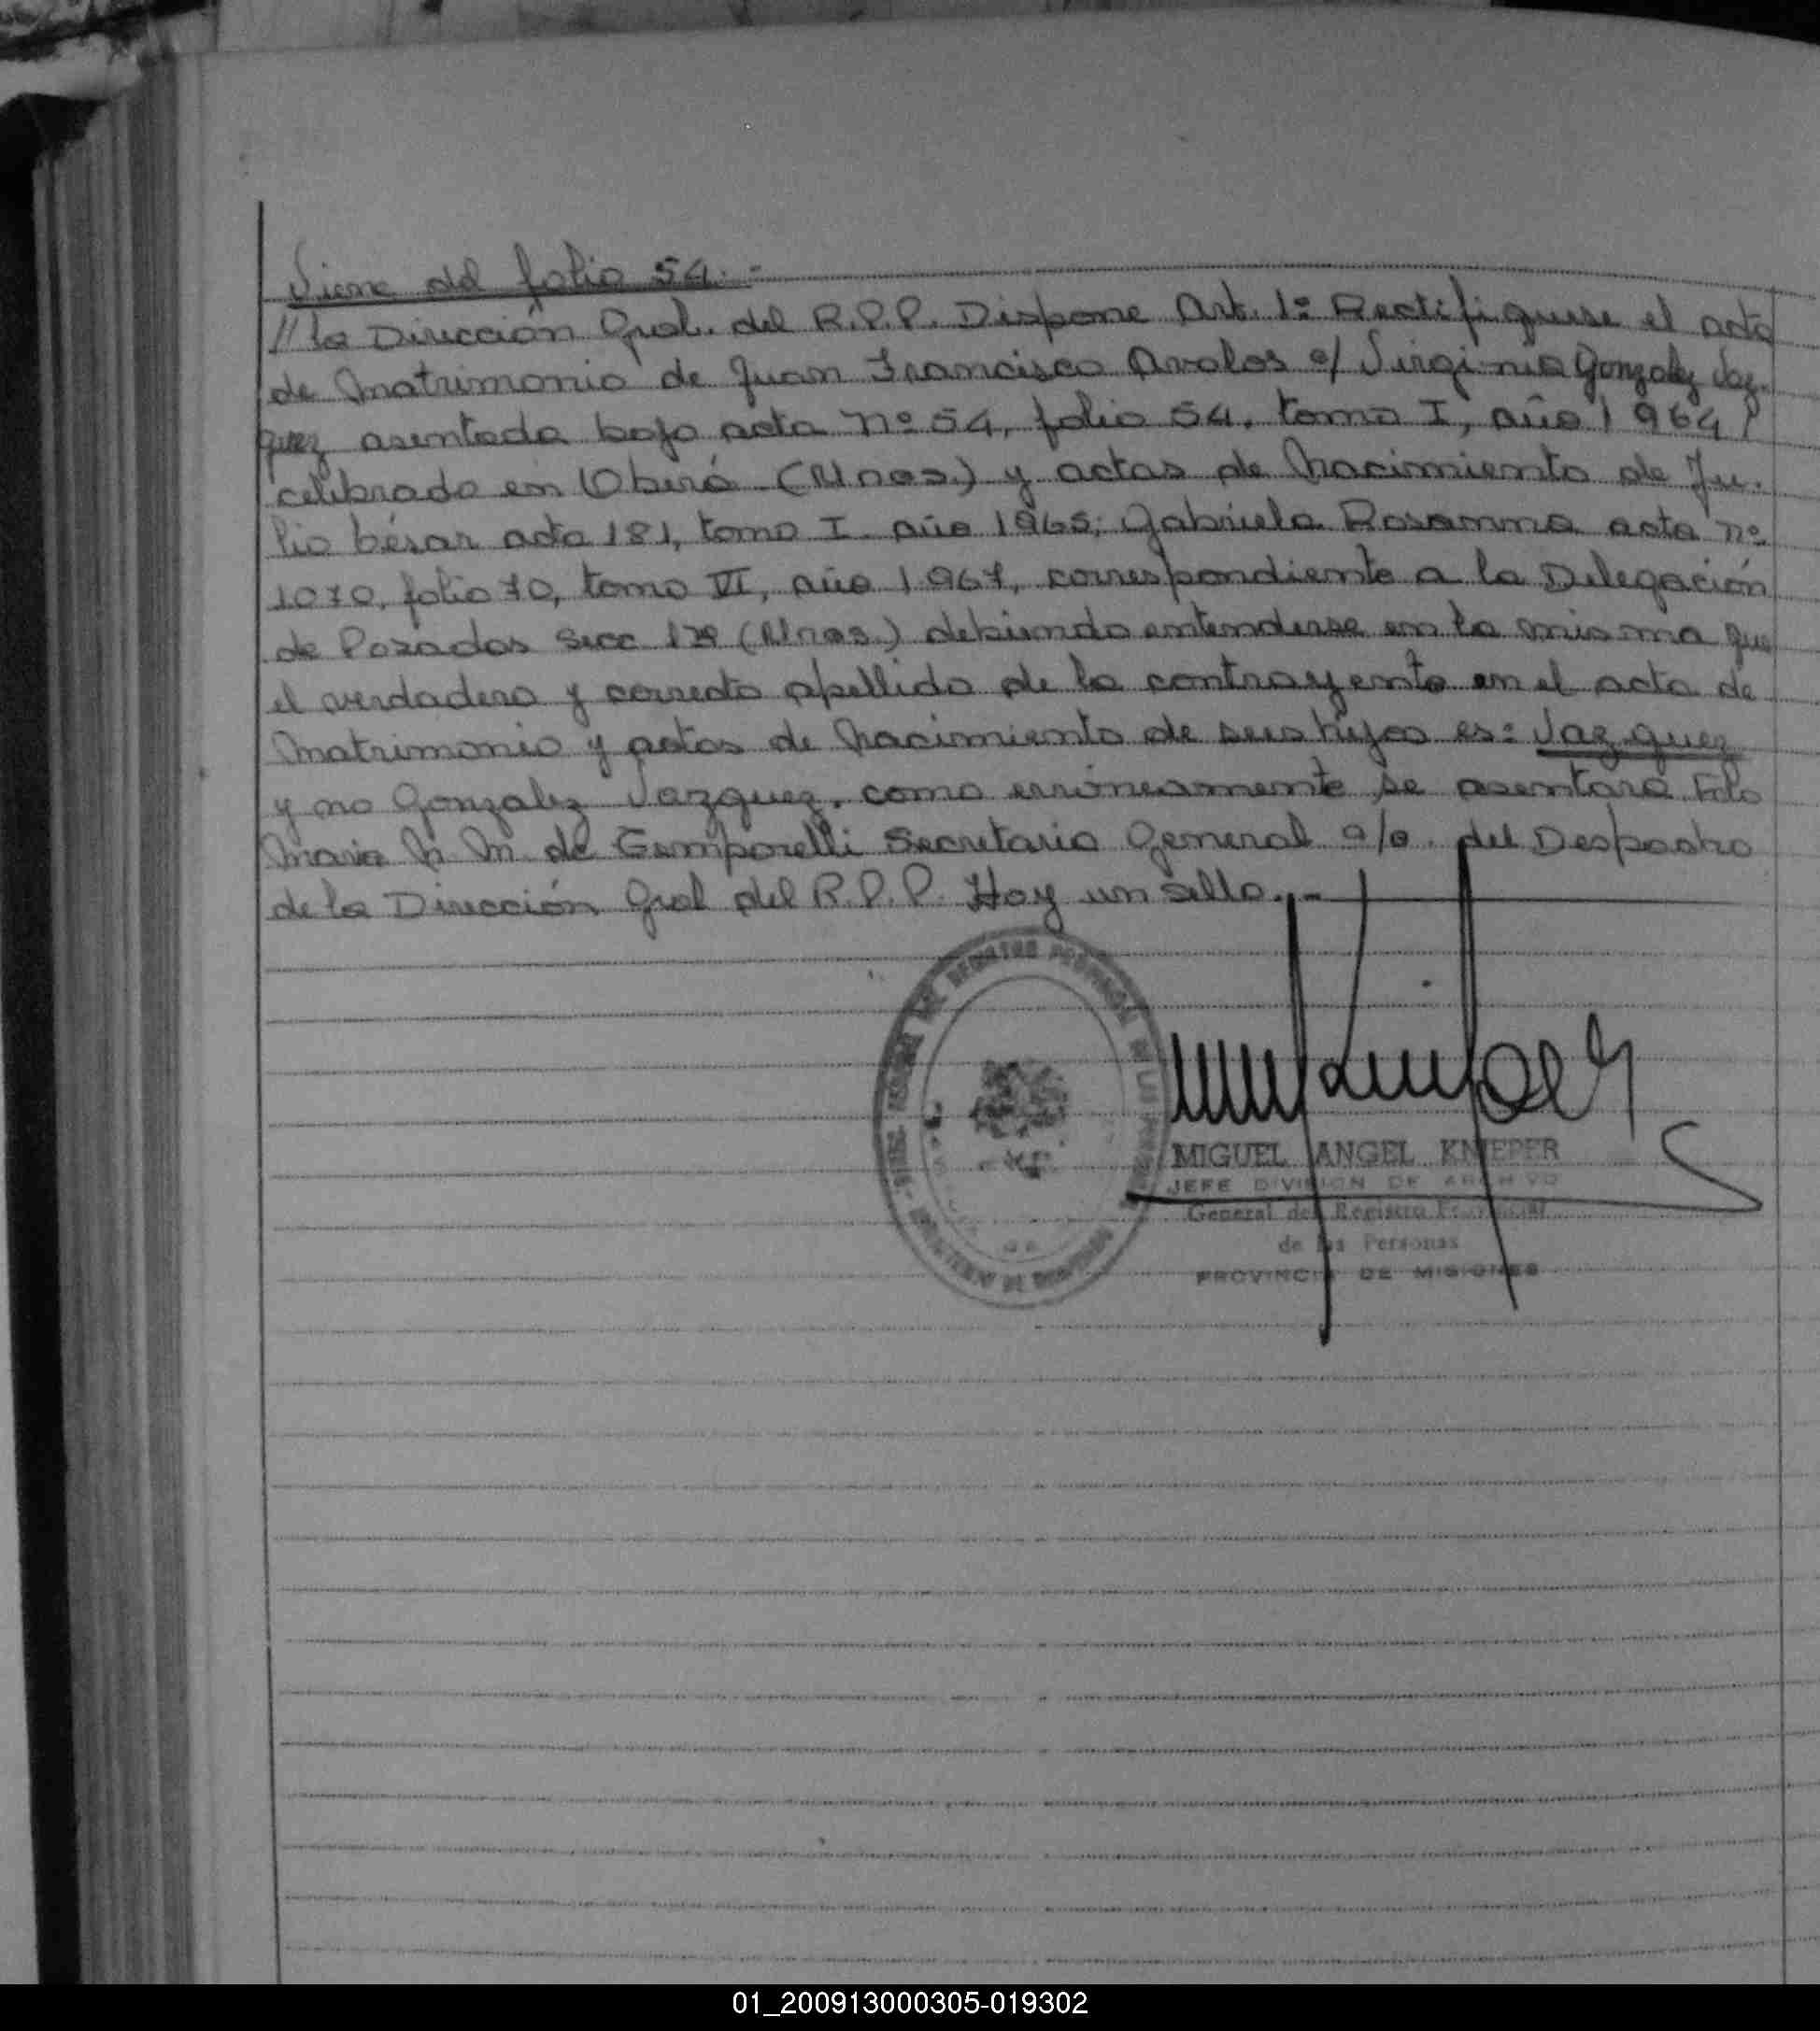 Viene del folio 54.-
// la Dirección Gral. del R.P.P. Dispone Art. 1º Rectifiquese el acta
de Matrimonio de Juan Francisco Avalos c/ Virginia Gonzalez Vaz-
quez asentada bajo acta nº 54, folio 54, tomo I, año 1964
celebrado en Oberá (Mnes.) y actas de Nacimiento de Ju-
lio César acta 181, tomo I año 1965; Gabriela Rosanna acta nº
1070, folio 70, tomo VI, año 1967, correspondiente a la Delegación
de Posadas Secc 1ra (Mnes.) debiendo entenderse en la misma que
el verdadero y correcto apellido de la contrayente en el acta de
Matrimonio y actas de Nacimiento de sus hijos es: Vazquez
y no Gonzalez Vazquez, como erróneamente se asentara Fdo
Maria M. de Gemporelli Secretario General a/c. del Despacho
de la Dirección Gral del R.P.P. Hay un sello.-
MIGUEL ANGEL KNIEPER
JEFE DIVISION DE ARCHIVO
General del Registro Provincial
de las Personas
PROVINCIA DE MISIONES
01_200913000305-019302